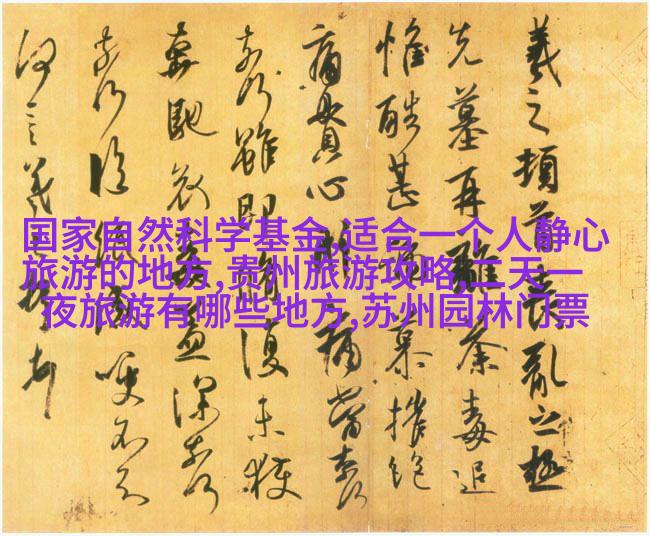 羲之頓首喪亂之極
先墓再離荼毒追
惟酷甚號慕摧絶
痛貫心肝痛當奈何
奈何雖即脩復未獲
奔馳哀毒益深奈何
奈何臨紙感哽不知
何言羲之頓首頓首
国家自然科学基金,适合一个人静心
旅游的地方,贵州旅游攻略,二天一
夜旅游有哪些地方,苏州园林门票